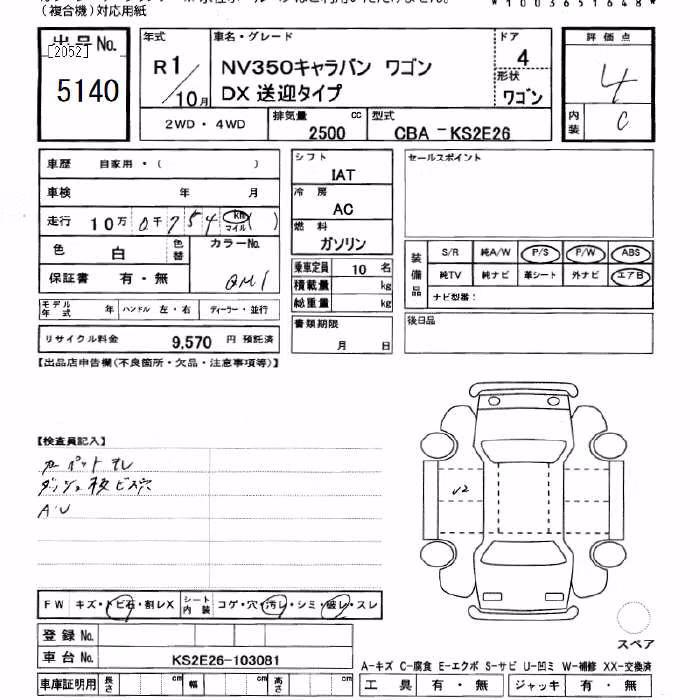 (複合機)対応用紙
*1003651648*
出品No.
[2052]
5140
年式
R1/10月
車名・グレード
NV350キャラバン ワゴン
DX 送迎タイプ
ドア
4
形状
ワゴン
2WD・4WD
排気量 2500 cc
型式 CBA-KS2E26
評価点
4
内装 C
車歴 自家用・( )
車検 年 月
走行 10万 0千 754 km マイル ( )
色 白 色替
カラーNo. QM1
保証書 有・無
モデル年式 年 ハンドル 左・右 ディーラー・並行
リサイクル料金 9,570 円 預託済
シフト
IAT
冷房
AC
燃料
ガソリン
乗車定員 10 名
積載量 kg
総重量 kg
書類期限
月 日
セールスポイント
装備品
S/R 純A/W P/S P/W ABS
純TV 純ナビ 革シート 外ナビ エアB
ナビ型番:
後日品
【出品店申告欄(不良箇所・欠品・注意事項等)】
【検査員記入】
カーペット
ダッシュ板ビス穴
AU
U2
FW キズ・トビ石・割レX シート内装 コゲ・穴・汚レ・シミ・破レ・スレ
登録No.
車台No. KS2E26-103081
車庫証明用 長さ cm 幅 cm 高さ cm
スペア
A-キズ C-腐食 E-エクボ S-サビ U-凹ミ W-補修 XX-交換済
工具 有・無 ジャッキ 有・無